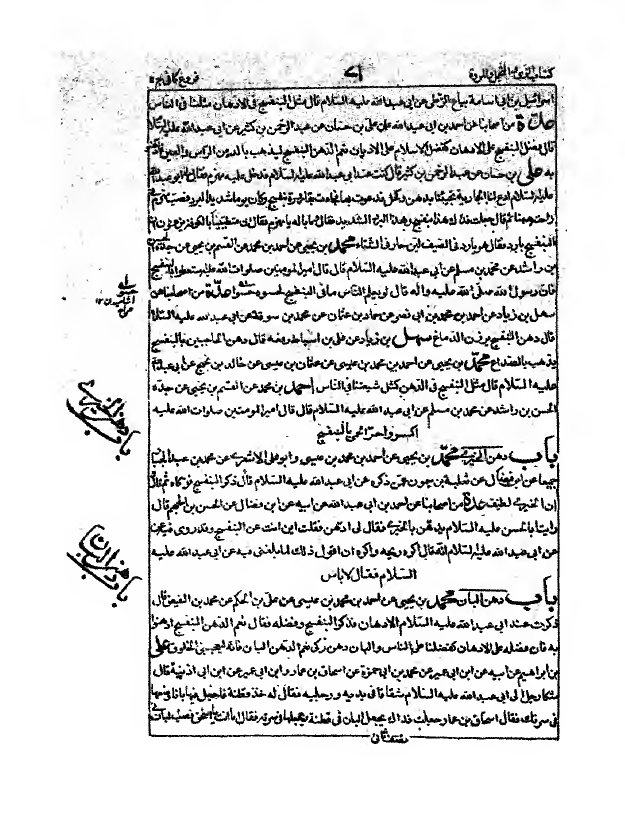 كتاب الزى والتجمل والمروة ٧١ فروع كافى ج ٥
اسرائيل بن ابى اسامة بياع الزطى عن ابى عبد الله عليه السلام قال مثل البنفسج فى الادهان مثلنا فى الناس
عدة من اصحابنا عن احمد بن ابى عبد الله عن على بن حسان عن عبد الرحمن بن كثير عن ابى عبد الله عليه السلام
قال فضل البنفسج على الادهان كفضل الاسلام على الاديان نعم الدهن البنفسج ليذهب بالداء من الراس والعينين فادهنوا
به على بن حسان عن عبد الرحمن بن كثير قال كنت عند ابى عبد الله عليه السلام فدخل عليه مهزم فقال لى ابو عبد الله
عليه السلام ادع لنا الجارية تجيئنا بدهن وكحل فدعوت بها فجاءت بقارورة بنفسج وكان يوما شديد البرد فصب مهزم فى
راحته منها ثم قال جعلت فداك هذا بنفسج وهذا البرد الشديد فقال وما باله يا مهزم فقال ان متطببينا بالكوفة يزعمون ان
البنفسج بارد فقال هو بارد فى الصيف لين حار فى الشتاء محمد بن يحيى عن احمد بن محمد عن القسم بن يحيى عن جده الحسن
بن راشد عن محمد بن مسلم عن ابى عبد الله عليه السلام قال قال امير المومنين صلوات الله عليه استعطوا بالبنفسج
فان رسول الله صلى الله عليه واله قال لو يعلم الناس ما فى البنفسج لحسوه حسوا عدة من اصحابنا عن
سهل بن زياد عن احمد بن محمد بن ابى نصر عن حماد بن عثمان عن محمد بن سوقة عن ابى عبد الله عليه السلام
قال دهن البنفسج يرزن الدماغ سهل بن زياد عن على بن اسباط رفعه قال دهن الحاجبين بالبنفسج
يذهب بالصداع محمد بن يحيى عن احمد بن محمد بن عيسى عن عثمان بن عيسى عن خالد بن نجيح عن ابى عبد الله
عليه السلام قال مثل البنفسج فى الدهن كمثل شيعتنا فى الناس احمد بن محمد عن القسم بن يحيى عن جده
الحسن بن راشد عن محمد بن مسلم عن ابى عبد الله عليه السلام قال قال امير المومنين صلوات الله عليه
اكسروا حر الحمى بالبنفسج
باب دهن الخيرى محمد بن يحيى عن احمد بن محمد بن عيسى وابو على الاشعرى عن محمد بن عبد الجبار
جميعا عن ابن فضال عن ثعلبة بن ميمون عمن ذكره عن ابى عبد الله عليه السلام قال ذكر البنفسج فزكاه ثم قال
ان الخيرى لطيف عدة من اصحابنا عن احمد بن ابى عبد الله عن ابيه عن ابن فضال عن الحسن بن الجهم قال
رايت ابا الحسن عليه السلام يدهن بالخيرى فقال لى ادهن فقلت اين انت عن البنفسج وقد روى فيه
عن ابى عبد الله عليه السلام قال اكره ريحه قال قلت له فانى قد كنت اكره ريحه واكره ان اقول ذلك لما بلغنى فيه عن ابى عبد الله عليه
السلام فقال لا باس
باب دهن البان محمد بن يحيى عن احمد بن محمد بن عيسى عن على بن الحكم عن محمد بن الفيض قال
ذكرت عند ابى عبد الله عليه السلام الادهان فذكر البنفسج وفضله فقال نعم الدهن البنفسج ادهنوا
به فان فضله على الادهان كفضلنا على الناس والبان دهن ذكى نعم الدهن البان فانه ليعجبنى الخلوق على
بن ابراهيم عن ابيه عن ابن ابى عمير عن محمد بن ابى حمزة عن اسحاق بن عمار وابن ابى عمير عن ابن اذينة قال
شكا رجل الى ابى عبد الله عليه السلام شقاقا فى يديه ورجليه فقال له خذ قطنة فاجعل فيها بانا وضعها
فى سرتك فقال اسحاق بن عمار جعلت فداك يجعل البان فى قطنة ويجعلها فى سرته فقال اما انت يا اسحق فصب البان